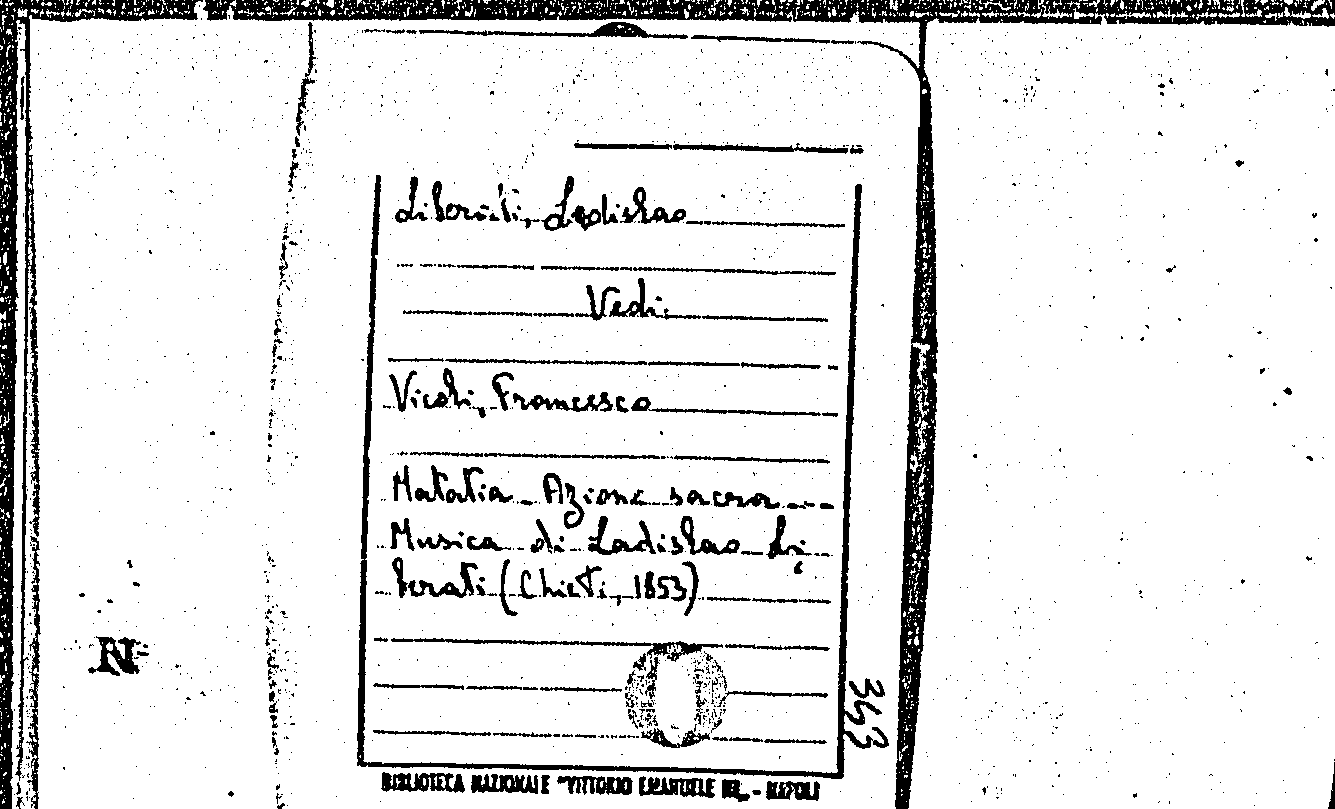 Liberati, Ladislao
Vedi:
Vicoli, Francesco
Matatia - Azione sacra ---
Musica di Ladislao Li
berati (Chieti, 1853)
343
N
BIBLIOTECA NAZIONALE "VITTORIO EMANUELE III„ - NAPOLI